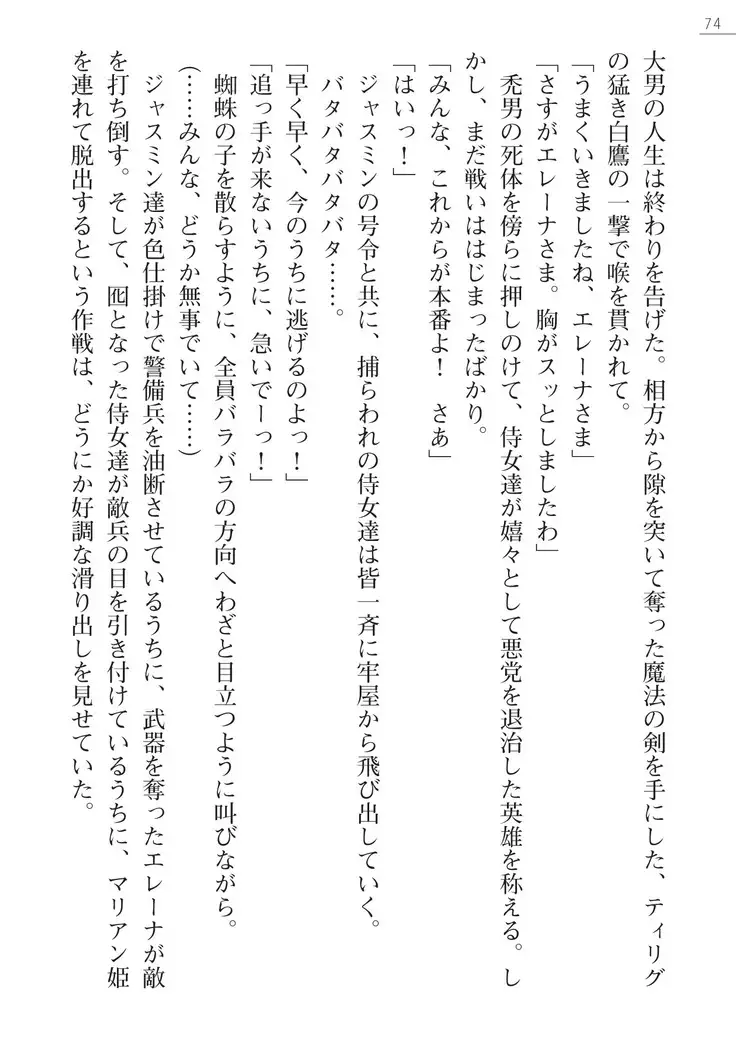 74
大男の人生は終わりを告げた。相方から隙を突いて奪った魔法の剣を手にした、ティリグ
の猛き白鷹の一撃で喉を貫かれて。
「うまくいきましたね、エレーナさま」
「さすがエレーナさま。胸がスッとしましたわ」
禿男の死体を傍らに押しのけて、侍女達が嬉々として悪党を退治した英雄を称える。し
かし、まだ戦いははじまったばかり。
「みんな、これからが本番よ！　さあ」
「はいっ！」
ジャスミンの号令と共に、捕らわれの侍女達は皆一斉に牢屋から飛び出していく。
バタバタバタバタ……。
「早く早く、今のうちに逃げるのよっ！」
「追っ手が来ないうちに、急いでーっ！」
蜘蛛の子を散らすように、全員バラバラの方向へわざと目立つように叫びながら。
（……みんな、どうか無事でいて……）
ジャスミン達が色仕掛けで警備兵を油断させているうちに、武器を奪ったエレーナが敵
を打ち倒す。そして、囮となった侍女達が敵兵の目を引き付けているうちに、マリアン姫
を連れて脱出するという作戦は、どうにか好調な滑り出しを見せていた。